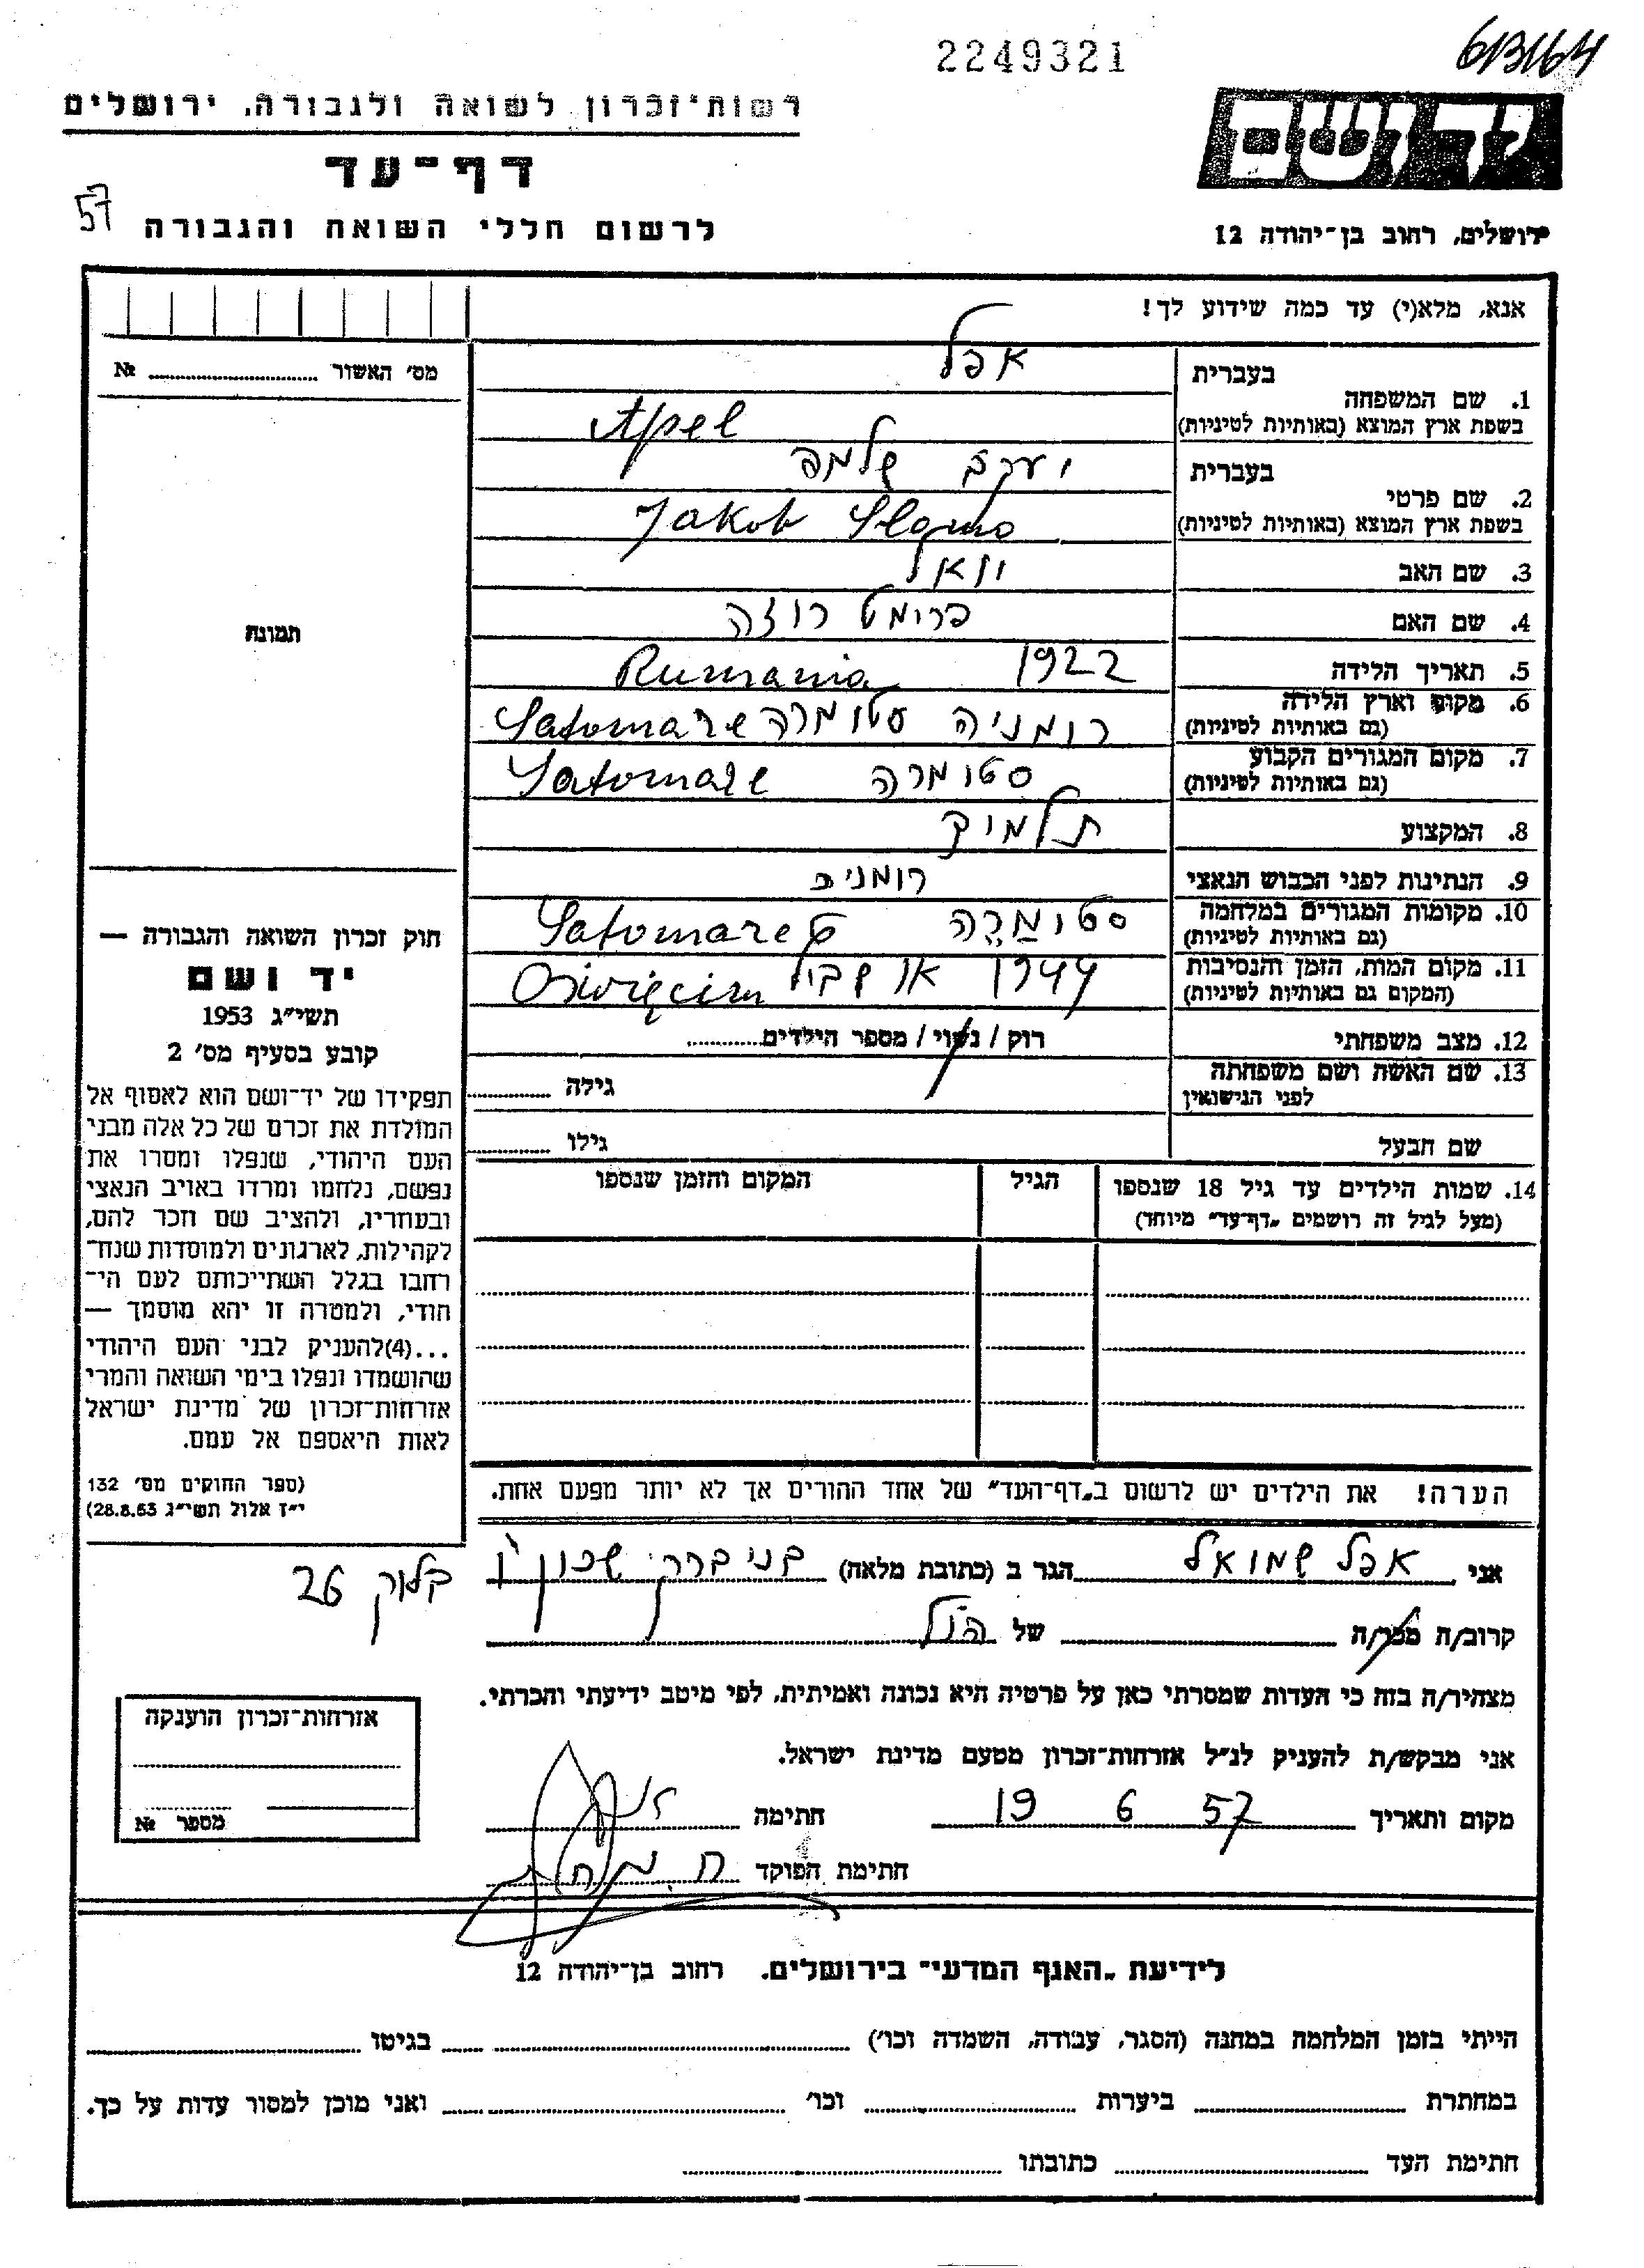 2249321
613164
רשות־זכרון לשואה ולגבורה, ירושלים
יד ושם
דף־עד
57
לרשום חללי השואה והגבורה
ירושלים, רחוב בן־יהודה 12
אנא, מלא(י) עד כמה שידוע לך!
מס׳ האשור № ........
1. שם המשפחה
בעברית אפל
בשפת ארץ המוצא (באותיות לטיניות) Apel
2. שם פרטי
בעברית יעקב שלמה
בשפת ארץ המוצא (באותיות לטיניות) Jakob Slomo
3. שם האב יואל
4. שם האם פרימט רוזה
5. תאריך הלידה 1922 Rumania
6. מקום וארץ הלידה
(גם באותיות לטיניות) רומניה סטומרה Satomare
7. מקום המגורים הקבוע
(גם באותיות לטיניות) סטומרה Satomare
8. המקצוע תלמיד
9. הנתינות לפני הכבוש הנאצי רומני
10. מקומות המגורים במלחמה
(גם באותיות לטיניות) סטומרה Satomare
11. מקום המות, הזמן והנסיבות
(המקום גם באותיות לטיניות) 1944 Oświęcim
12. מצב משפחתי רוק / נשוי / מספר הילדים........
13. שם האשה ושם משפחתה
לפני הנישואין גילה ........
שם הבעל גילו ........
14. שמות הילדים עד גיל 18 שנספו
(מעל לגיל זה רושמים „דף־עד״ מיוחד)
הגיל
המקום והזמן שנספו
תמונה
חוק זכרון השואה והגבורה —
יד ושם
תשי״ג 1953
קובע בסעיף מס׳ 2
תפקידו של יד־ושם הוא לאסוף אל
המולדת את זכרם של כל אלה מבני
העם היהודי, שנפלו ומסרו את
נפשם, נלחמו ומרדו באויב הנאצי
ובעוזריו, ולהציב שם וזכר להם,
לקהילות, לארגונים ולמוסדות שנח־
רחבו בגלל השתייכותם לעם הי־
הודי, ולמטרה זו יהא מוסמך —
...(4)להעניק לבני העם היהודי
שהושמדו ונפלו בימי השואה והמרי
אזרחות־זכרון של מדינת ישראל
לאות היאספם אל עמם.
(ספר החוקים מס׳ 132
י״ז אלול תשי״ג 28.8.53)
הערה! את הילדים יש לרשום ב„דף־העד״ של אחד ההורים אך לא יותר מפעם אחת.
אני אפל שמואל הגר ב (כתובת מלאה) בני ברק שכון ו׳
בלוק 26
קרוב/ה מכר/ה ........ של הנ״ל
מצהיר/ה בזה כי העדות שמסרתי כאן על פרטיה היא נכונה ואמיתית, לפי מיטב ידיעתי והכרתי.
אני מבקש/ת להעניק לנ״ל אזרחות־זכרון מטעם מדינת ישראל.
מקום ותאריך 19 6 57 חתימה
חתימת הפוקד
אזרחות־זכרון הוענקה
מספר №
לידיעת „האגף המדעי״ בירושלים. רחוב בן־יהודה 12
הייתי בזמן המלחמה במחנה (הסגר, עבודה, השמדה וכו׳) ........ בגיטו ........
במחתרת ........ ביערות ........ וכו׳ ........ ואני מוכן למסור עדות על כך.
חתימת העד ........ כתובתו ........